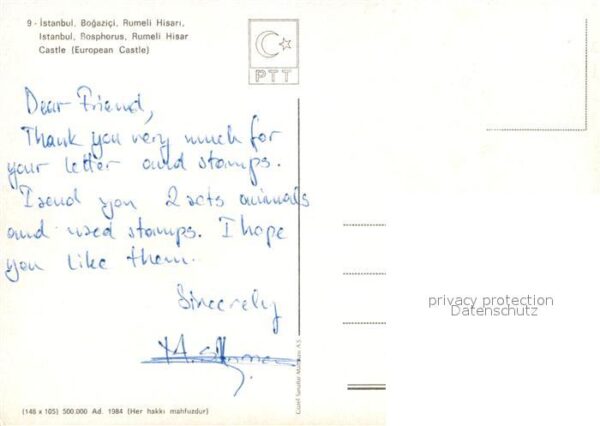 9 - İstanbul. Boğaziçi, Rumeli Hisarı,
Istanbul, Bosphorus, Rumeli Hisar
Castle (European Castle)
PTT
Dear Friend,
Thank you very much for
your letter and stamps.
I send you 2 sets animals
and used stamps. I hope
you like them.
Sincerely
privacy protection
Datenschutz
(148 x 105) 500.000 Ad. 1984 (Her hakkı mahfuzdur)